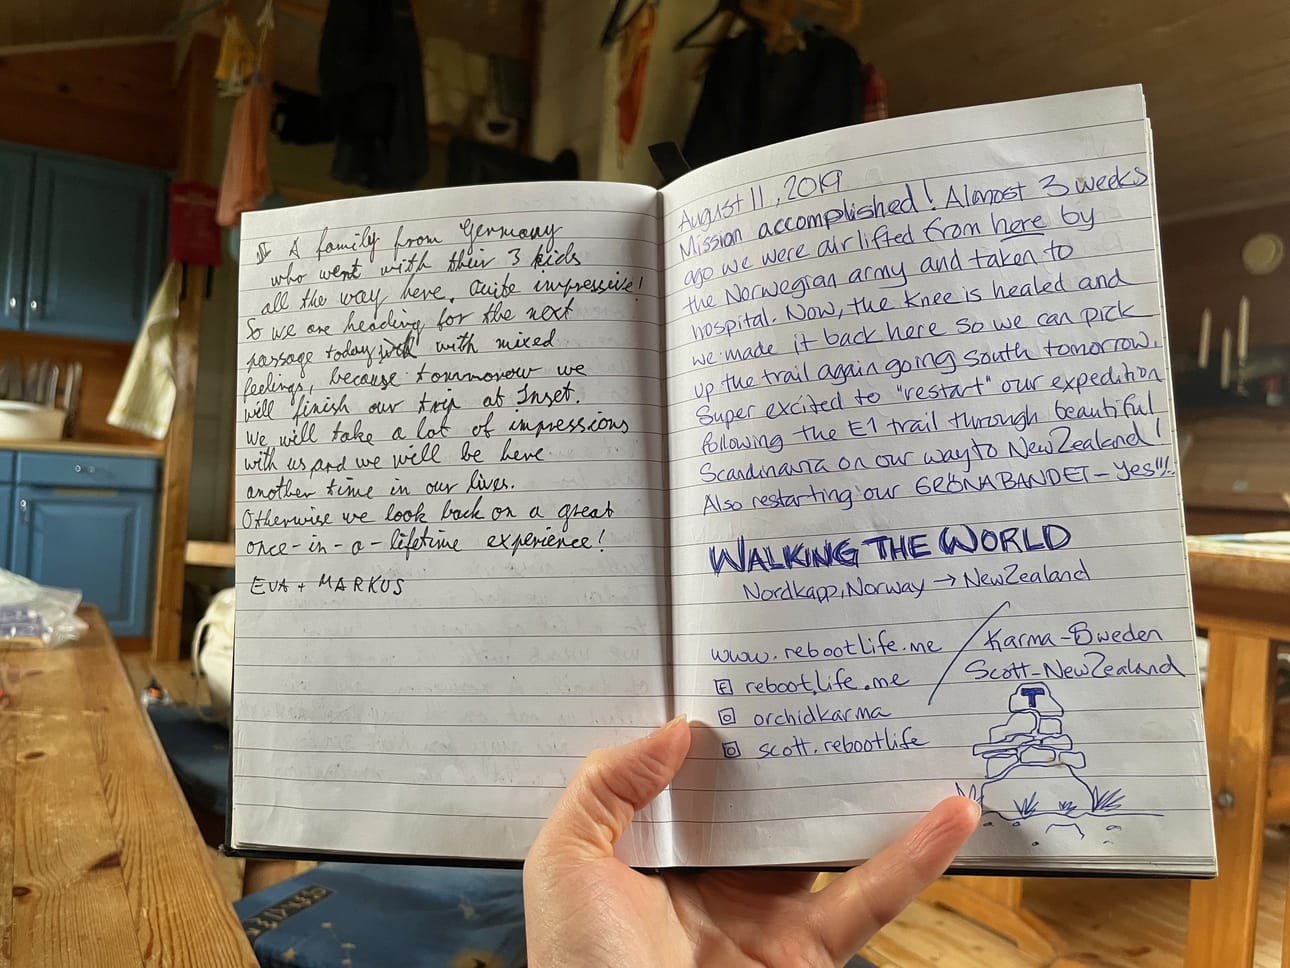 IV A family from Germany
who went with their 3 kids
all the way here. Quite impressive!
So we are heading for the next
passage today with mixed
feelings, because tommorow we
will finish our trip at Inset.
We will take a lot of impressions
with us and we will be here
another time in our lives.
Otherwise we look back on a great
once-in-a-lifetime experience!
EVA + MARKUS
August 11, 2019
Mission accomplished! Almost 3 weeks
ago we were airlifted from here by
the Norwegian army and taken to
hospital. Now, the knee is healed and
we made it back here so we can pick
up the trail again going south tomorrow.
Super excited to "restart" our expedition
following the E1 trail through beautiful
Scandinavia on our way to New Zealand!
Also restarting our GRÖNABANDET - yes!!!
WALKING THE WORLD
Nordkapp, Norway → New Zealand
www.rebootlife.me / Karma - Sweden
Scott - New Zealand
F reboot.life.me
orchidkarma
scott.rebootlife
T